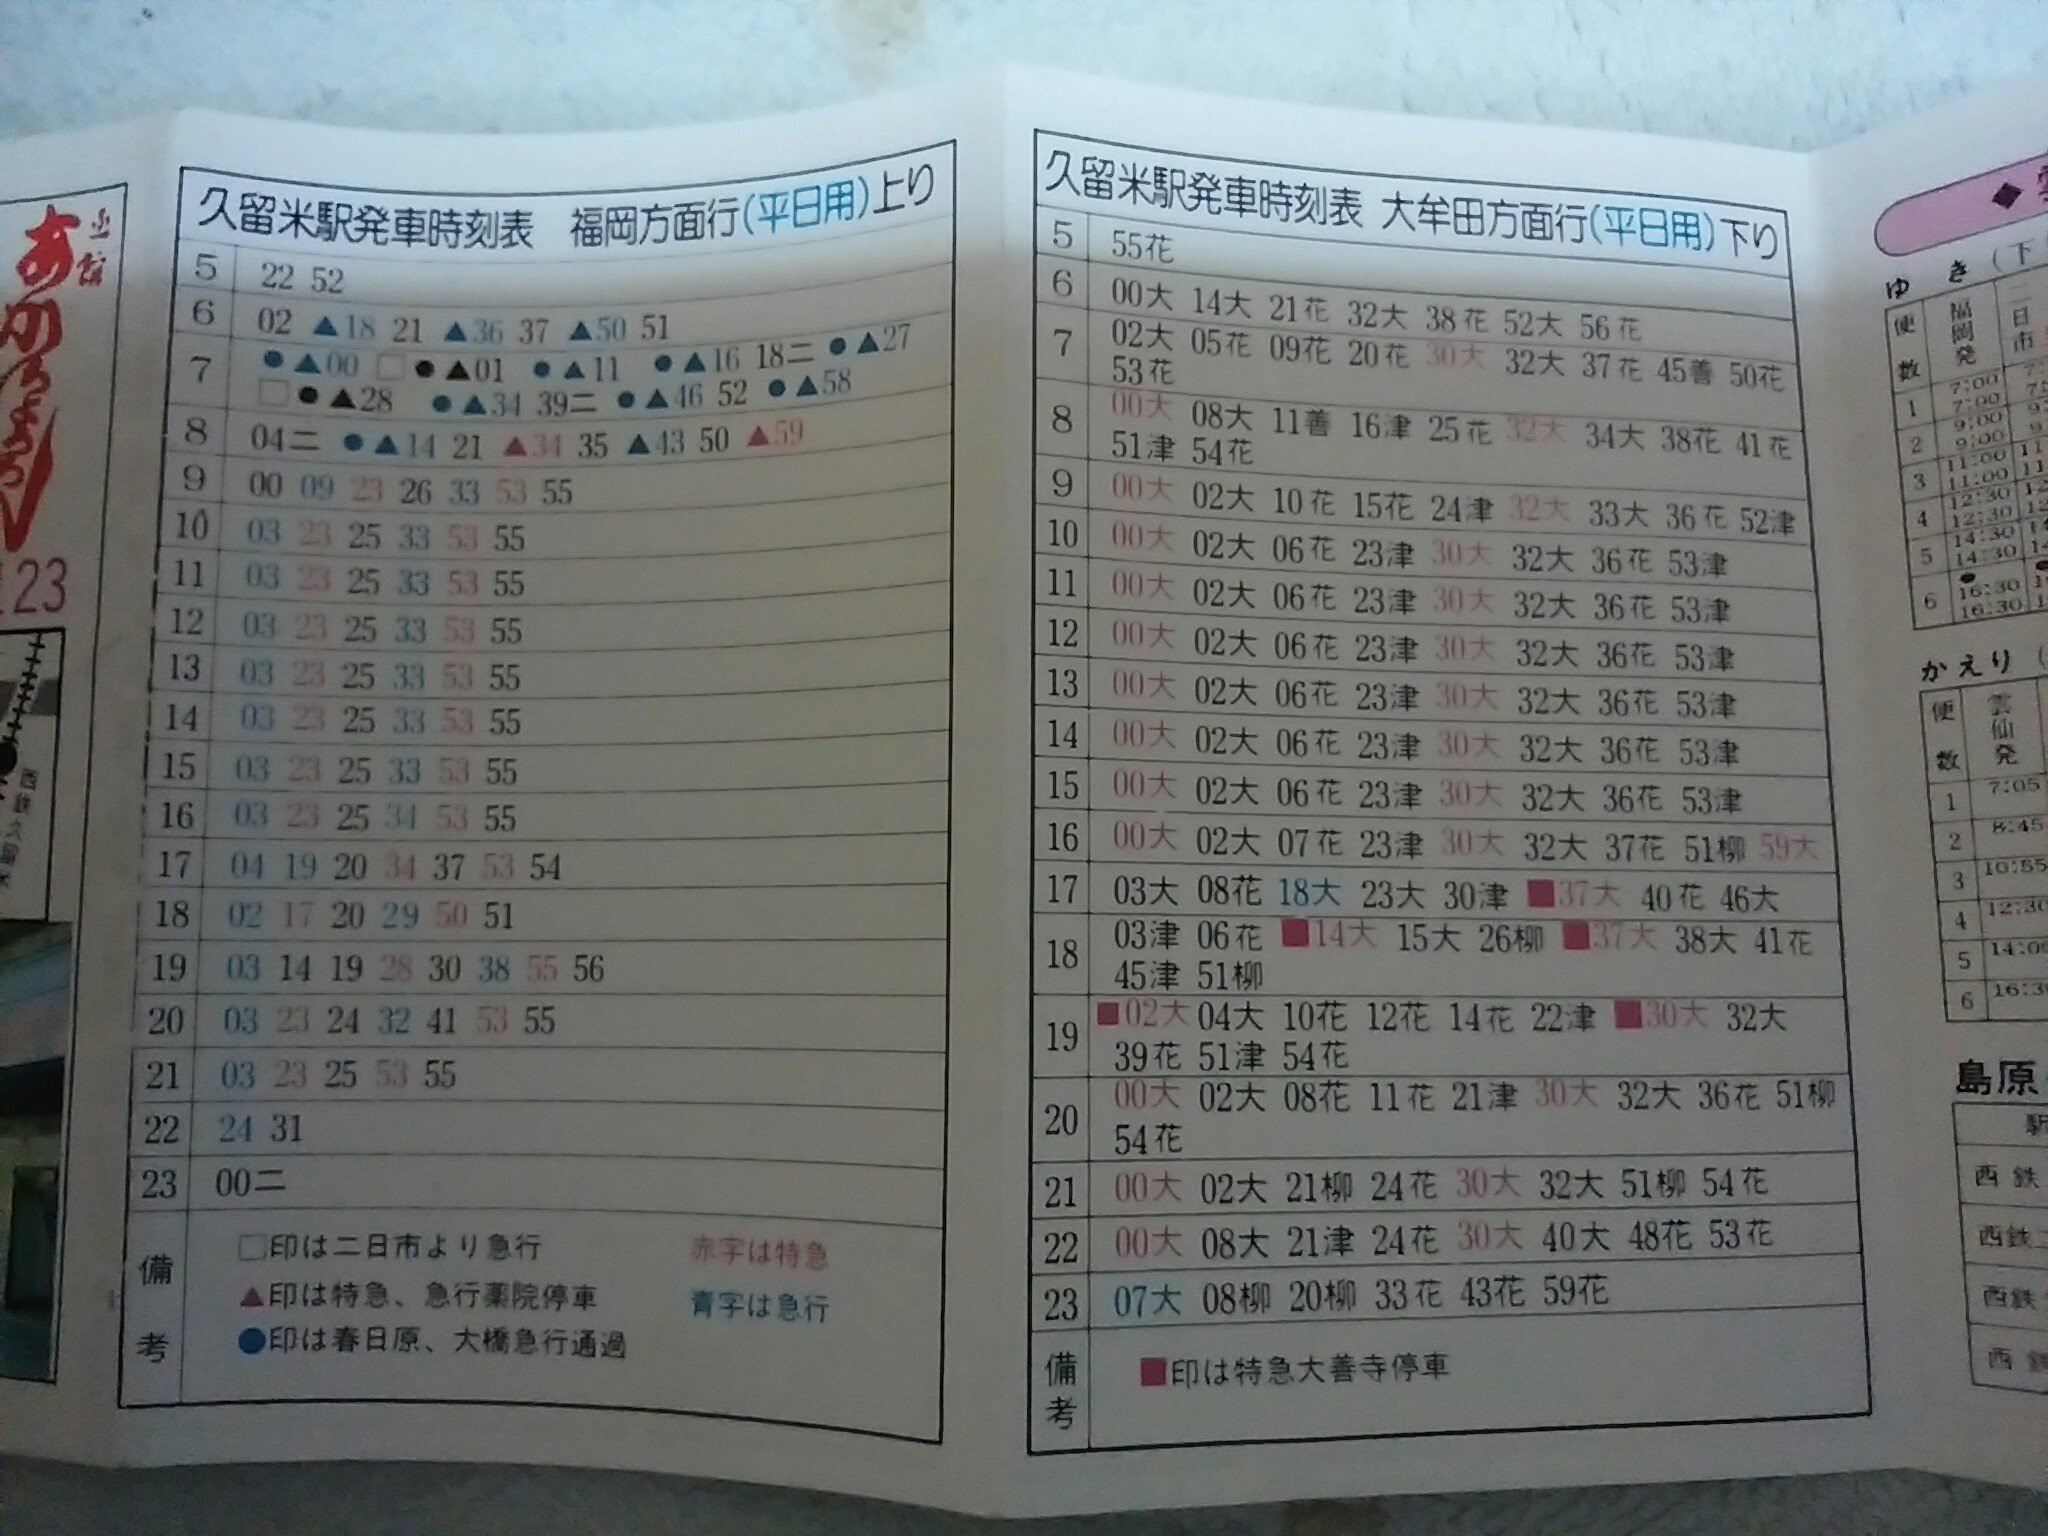 あかちょうちん
123
西鉄久留米
久留米駅発車時刻表 福岡方面行(平日用)上り
5 22 52
6 02 ▲18 21 ▲36 37 ▲50 51
7 ●▲00 □●▲01 ●▲11 ●▲16 18二 ●▲27
□●▲28 ●▲34 39二 ●▲46 52 ●▲58
8 04二 ●▲14 21 ▲34 35 ▲43 50 ▲59
9 00 09 23 26 33 53 55
10 03 23 25 33 53 55
11 03 23 25 33 53 55
12 03 23 25 33 53 55
13 03 23 25 33 53 55
14 03 23 25 33 53 55
15 03 23 25 33 53 55
16 03 23 25 34 53 55
17 04 19 20 34 37 53 54
18 02 17 20 29 50 51
19 03 14 19 28 30 38 55 56
20 03 23 24 32 41 53 55
21 03 23 25 53 55
22 24 31
23 00二
備考
□印は二日市より急行 赤字は特急
▲印は特急、急行薬院停車 青字は急行
●印は春日原、大橋急行通過
久留米駅発車時刻表 大牟田方面行(平日用)下り
5 55花
6 00大 14大 21花 32大 38花 52大 56花
7 02大 05花 09花 20花 30大 32大 37花 45善 50花
53花
8 00大 08大 11善 16津 25花 32大 34大 38花 41花
51津 54花
9 00大 02大 10花 15花 24津 32大 33大 36花 52津
10 00大 02大 06花 23津 30大 32大 36花 53津
11 00大 02大 06花 23津 30大 32大 36花 53津
12 00大 02大 06花 23津 30大 32大 36花 53津
13 00大 02大 06花 23津 30大 32大 36花 53津
14 00大 02大 06花 23津 30大 32大 36花 53津
15 00大 02大 06花 23津 30大 32大 36花 53津
16 00大 02大 07花 23津 30大 32大 37花 51柳 59大
17 03大 08花 18大 23大 30津 ■37大 40花 46大
18 03津 06花 ■14大 15大 26柳 ■37大 38大 41花
45津 51柳
19 ■02大 04大 10花 12花 14花 22津 ■30大 32大
39花 51津 54花
20 00大 02大 08花 11花 21津 30大 32大 36花 51柳
54花
21 00大 02大 21柳 24花 30大 32大 51柳 54花
22 00大 08大 21津 24花 30大 40大 48花 53花
23 07大 08柳 20柳 33花 43花 59花
備考
■印は特急大善寺停車
◆
ゆき(下
便数 福岡発 二日市
1 7:00
7:00
2 9:00
9:00
3 11:00
11:00
4 12:30
12:30
5 14:30
14:30
6 ●
16:30
16:30
かえり(
便数 雲仙発
1 7:05
2 8:45
3 10:55
4 12:30
5 14:00
6 16:30
島原
駅
西鉄
西鉄二
西鉄
西鉄